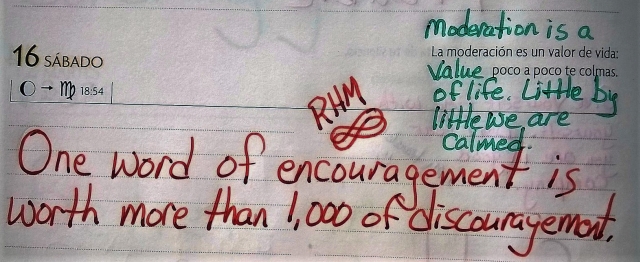 16 SÁBADO
☾ → ♍ 18:54
Moderation is a
La moderación es un valor de vida:
Value poco a poco te colmas.
of life. Little by
little we are
Calmed.
RHM
One word of encouragement is
worth more than 1,000 of discouragement.